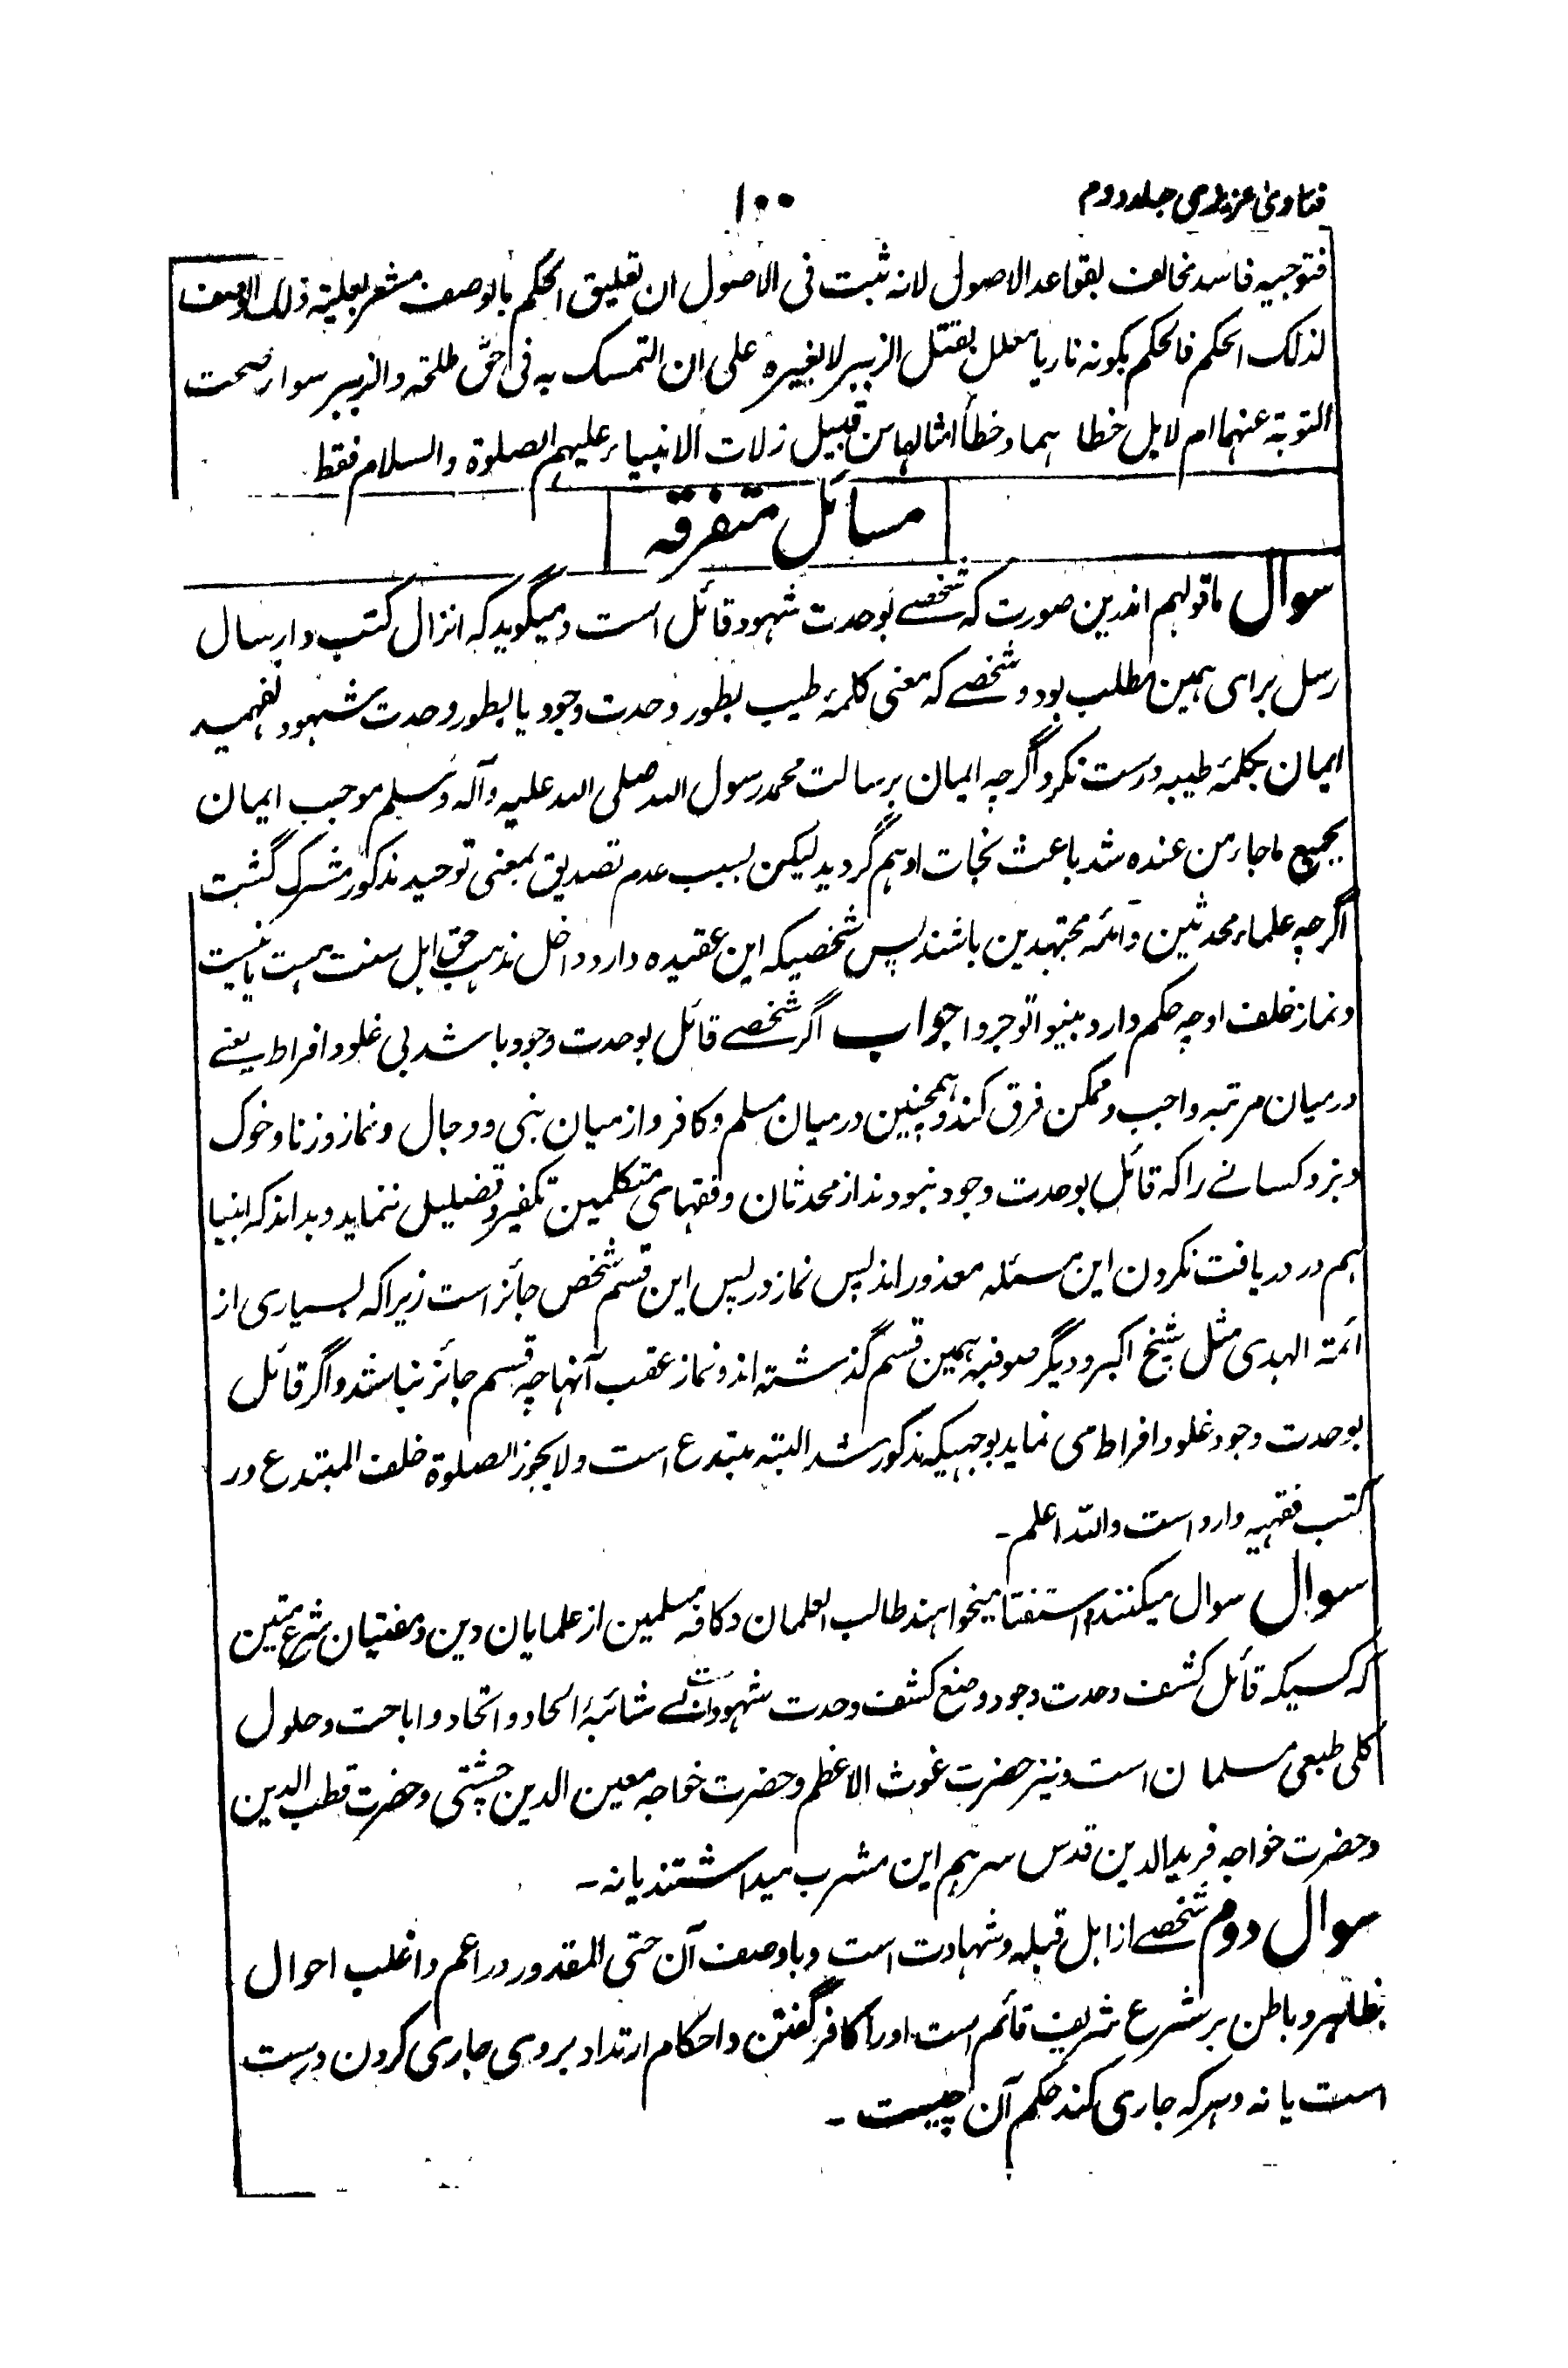 فتاوی عزیزی جلد دوم
۱۰۰
فتوجیه فاسد مخالف لقواعد الاصول لانه ثبت فی الاصول ان تعلیق الحکم بالوصف مشعر بعلیة ذلک الوصف
لذلک الحکم فالحکم بکونه ناریا معلل بقتل الزبیر لا بغیره علی ان التمسک به فی حق طلحة والزبیر سواء صحت
التوبة عنهما ام لا بل خطا هما و خطأ امثالها من قبیل زلات الانبیاء علیهم الصلوة والسلام فقط
مسائل متفرقه
سوال ما قولهم اندرین صورت که شخصے بوحدت شهود قائل است و میگوید که انزال کتب و ارسال
رسل برای همین مطلب بود و شخصے که معنی کلمۀ طیب بطور وحدت وجود یا بطور وحدت شهود نفهمید
ایمان بکلمۀ طیبه درست نکرد اگرچه ایمان برسالت محمد رسول الله صلی الله علیه وآله وسلم موجب ایمان
بجمیع ما جاء من عنده شد باعث نجات او هم گردید لیکن بسبب عدم تصدیق بمعنی توحید مذکور مشرک گشت
اگرچه علماء محدثین و ائمه مجتهدین باشند پس شخصیکه این عقیده دارد داخل مذهب حق اهل سنت هست یا نیست
و نماز خلف او چه حکم دارد بینوا توجروا جواب اگر شخصے قائل بوحدت وجود باشد بی غلو و افراط یعنے
درمیان مرتبه واجب و ممکن فرق کند و همچنین درمیان مسلم و کافر و از میان نبی و دجال و نماز و زنا و خوک
و بز و کسانے را که قائل بوحدت وجود نبودند از محدثان و فقهای متکلمین تکفیر و تضلیل ننماید و بداند که اینها
هم در دریافت نکردن این مسئله معذور اند پس نماز در پس این قسم شخص جائز است زیرا که بسیاری از
ائمة الهدی مثل شیخ اکبر و دیگر صوفیه همین قسم گذشته اند و نماز عقب آنها چه قسم جائز نباشد و اگر قائل
بوحدت وجود غلو و افراط می نماید بوجهیکه مذکور شد البته مبتدع است و لا یجوز الصلوة خلف المبتدع در
کتب فقهیه وارد است والله اعلم -
سوال سوال میکنند و استفتا میخواهند طالب العلمان و کافه مسلمین از علمایان دین و مفتیان شرع متین
که کسیکه قائل کشف وحدت وجود و منع کشف وحدت شهود است بے شائبۀ الحاد و اتحاد و اباحت و حلول
کلی طبعی مسلمان است و نیز حضرت غوث الاعظم و حضرت خواجه معین الدین چشتی و حضرت قطب الدین
و حضرت خواجه فرید الدین قدس سرهم این مشرب میداشتند یا نه -
سوال دوم شخصے از اهل قبله و شهادت است و باوصف آن حتی المقدور در اعم و اغلب احوال
بظاهر و باطن بر شرع شریف قائم است او را کافر گفتن و احکام ارتداد بر وی جاری کردن درست
است یا نه و هرکه جاری کند حکم آن چیست -